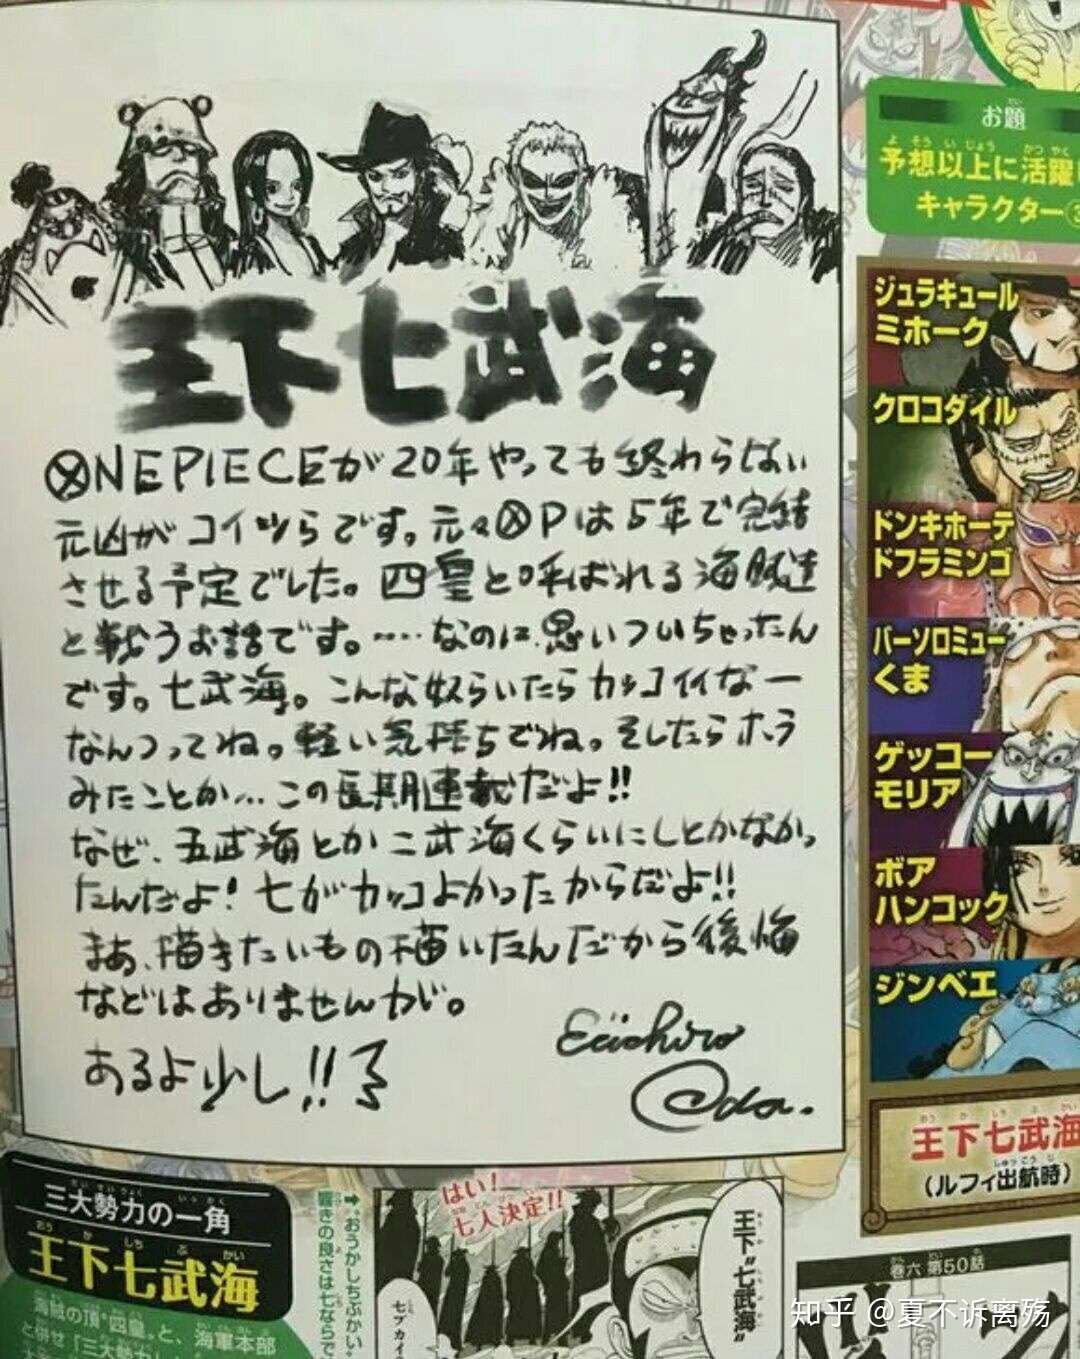 王下七武海
ONEPIECEが20年やっても終わらない
元凶がコイツらです。元々OPは5年で完結
させる予定でした。四皇と呼ばれる海賊達
と戦うお話です。……なのに、思いついちゃったん
です。七武海。こんな奴らいたらカッコイイなー
なんつってね。軽い気持ちでね。そしたらホラ
みたことか…この長期連載だよ!!
なぜ、五武海とか二武海くらいにしとかなかっ
たんだよ!七がカッコよかったからだよ!!
まあ、描きたいもの描いたんだから後悔
などはありませんがじ。
あるよ少し!!
Eiichiro
Oda.
お題
予想以上に活躍
キャラクター③
ジュラキュール
ミホーク
クロコダイル
ドンキホーテ
ドフラミンゴ
バーソロミュー
くま
ゲッコー
モリア
ボア
ハンコック
ジンベエ
王下七武海
(ルフィ出航時)
三大勢力の一角
王下七武海
海賊の頂"四皇"と、海軍本部
と併せ「三大勢力」
➡おうかしちぶかい。
響きの良さは七ならで
はい!
七人決定!!
王下"七武海"
七ブカイ
巻六 第50話
知乎 @夏不诉离殇